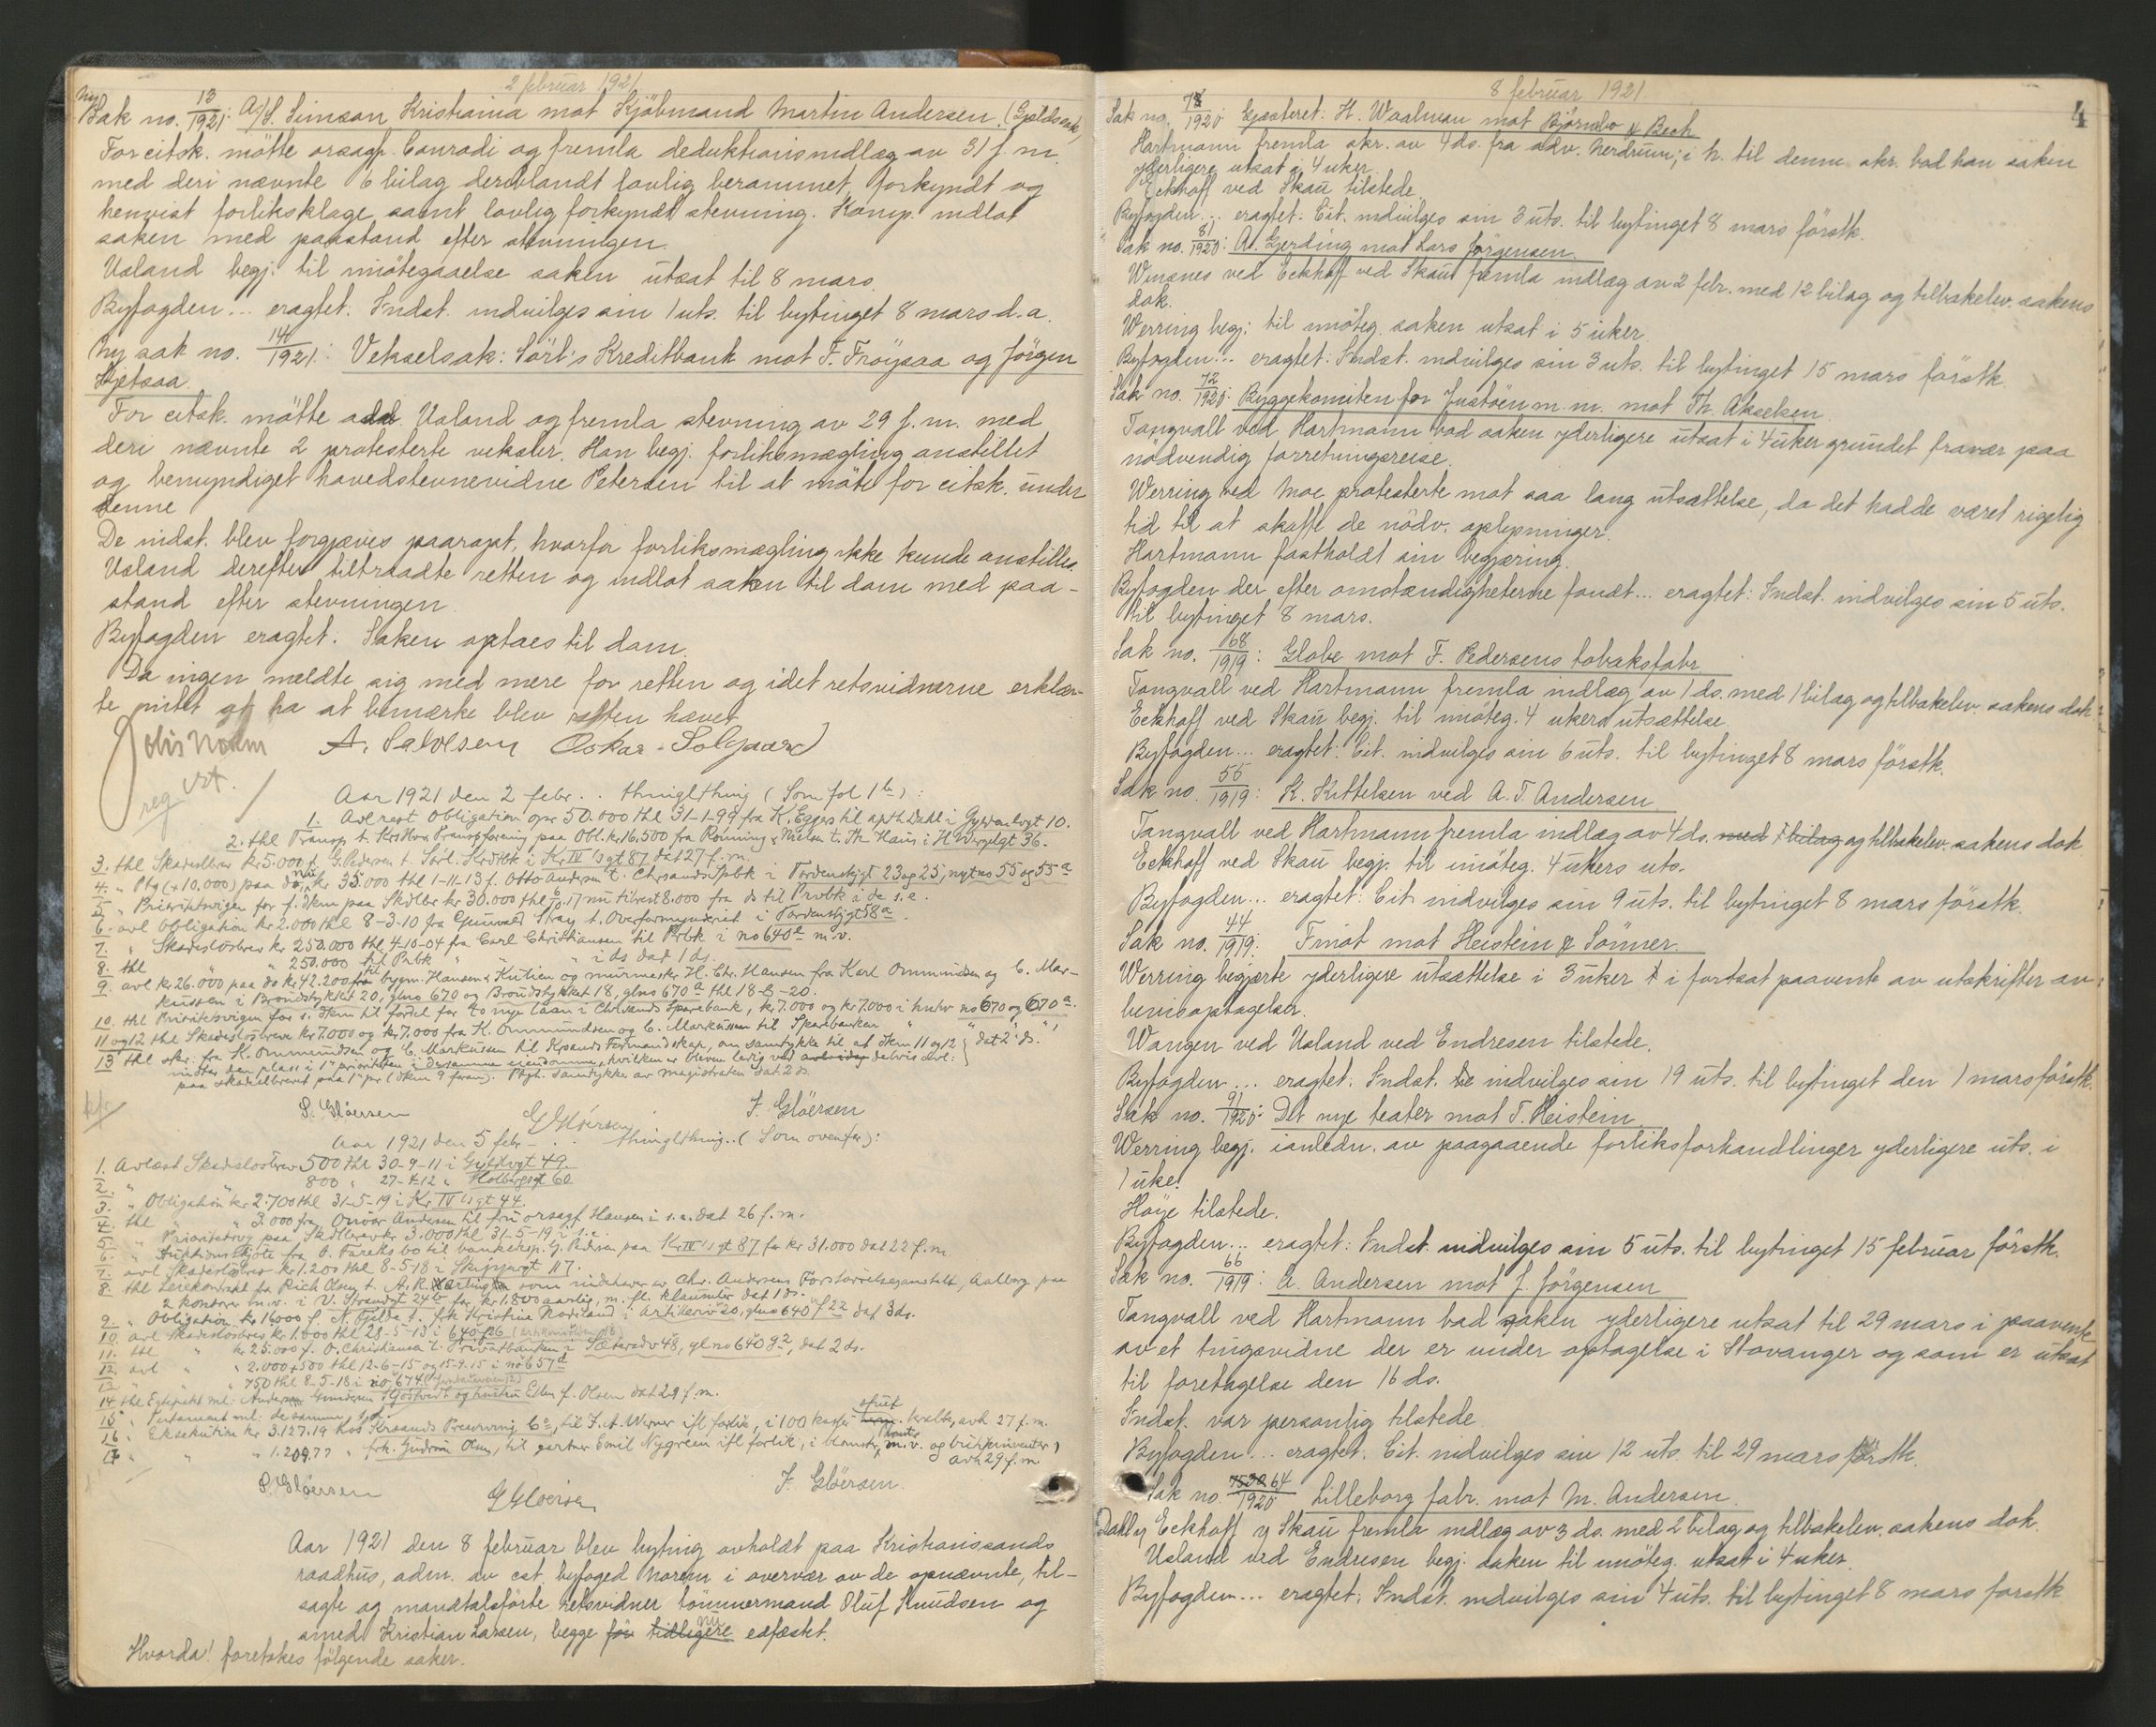 2 februar 1921
Ny
Sak no. 13/1921: A/S. Simson Kristiania mot Kjöbmand Martin Andersen. (Gjeldssak)
For citsk. mötte orsagf. Conradi og fremla deduktionsindlæg av 31 f.m.
med deri nævnte 6 bilag deriblandt lovlig berammet, forkyndt og
henvist forliksklage samt lovlig forkyndt stevning. Komp. indlot
saken med paastand efter stevningen.
Usland begj. til imötegaaelse saken utsat til 8 mars.
Byfogden... eragtet: Indst. indvilges sin 1 uts. til bytinget 8 mars d.a.
Ny sak no. 14/1921: Vekselsak: Sörl's Kreditbank mot F. Fröysaa og Jörgen
Kjetsaa.
For citsk. mötte Usland og fremla stevning av 29 f.m. med
deri nævnte 2 protesterte veksler. Han begj. forliksmægling anstillet
og bemyndiget hovedstevnevidne Petersen til at möte for citsk. under
denne
De indst. blev forgjæves paaropt, hvorfor forliksmægling ikke kunde anstilles.
Usland derefter tiltraadte retten og indlot saken til dom med paa-
stand efter stevningen.
Byfogden eragtet: Saken optaes til dom.
Da ingen meldte sig med mere for retten og idet retsvidnerne erklær-
te intet at ha at bemerke blev retten hævet
A. Salvesen Oskar Solgaard
Aar 1921 den 2 febr. . . thinglthing (Som fol 1b):
1. Avlæst Obligation opr 50.000 thl 31-1-99 fra K. Egges til Dahl i Gyldenlvgt 10.
2. thl Transp. t. paa Obl. kr. 16.500 fra Rönning t. Th. Haus i H Wergelgt 36.
3. thl Skadeslbrev kr 5.000 f. G. Pedersen t. Sörl. Krdtbk i Kr IV's gt 87 dat 27 f.m.
4. " Ptg (+10.000) paa do, nu kr 35.000 thl 1-11-13 f. Otto Andersen t. Chrsands Spbk i Tordenskjgt 23 og 25, nyt no 55 og 55a
5. " Prioritetsvigen for f. dkm paa Skdlbr kr 30.000 thl 17 nu tilrest 8.000 fra ds til Prvbk i do s.e.
6. avl Obligation kr 2.000 thl 8-3-10 fra Gunvald Stray t. Overformynderiet i Tordenskjgt 58a.
7. " Skadeslösbrev kr 250.000 thl 4-10-04 fra Carl Christiansen til Prbk i no 640a m.v.
8. thl " " 250.000 til Prbk " " i ds dat 1 ds.
9. avl kr. 26.000 paa do kr 42.200 til bygm. Hansen & Kutien og murmester H. Chr. Hansen fra Karl Ommundsen og C. Mar-
kussen i Bröndstykket 20, glno 670 og Bröndstykket 18, glno 670a thl 18-6-20.
10. thl Prioritetsvigen for s. dkm til fordel for to nye laan i Chrsands Sparebank, kr 7.000 og kr 7.000 i no 670 og 670a.
11 og 12 thl Skadeslösbreve kr 7.000 og kr 7.000 fra K. Ommundsen og C. Markussen til Sparebanken " " dat 2' ds.
13 thl skr. fra K. Ommundsen og C. Markussen til Krsands Formandskap, om samtykke til at dkm 11 og 12
inntar den plass i 1' prioriteten i desamme eiendomme, hvilken er bleven ledig ved delvis avl.
paa skadeslbrevet paa 1' pr (dkm 9 foran). Ptgh. samtykke av magistraten dat 2 ds.
S. Glöersen G Glöersen F. Glöersen
Aar 1921 den 5 febr. . . thinglthing.. (Som ovenfor):
1. Avlæst Skadeslosbrev 500 thl 30-9-11 i Gyldlvgt 49.
2. " 800 " 27-4-12 " Holbergsgt 60
3. " Obligation kr 2.700 thl 31-5-19 i Kr IV's gt 44.
4. thl " " 3.000 fra Andersen til fru orsagf. Hansen i s.e. dat 26 f.m.
5. " Prioritetsvig paa Skdlbrev kr 3.000 thl 31-5-19 i s.e.
6. " Auktionsskjöte fra O. Tareksbo til bankeksp. G. Pedersen paa Kr IV's gt 87 for kr 31.000 dat 22 f.m.
7. avl Skadeslösbrev kr 1.200 thl 8-5-18 i Skippergt 117.
8. thl Leiekontrakt fra Rich Olsen t. A. R. som indehaver av Chr. Andersens Forstörrelsesanstalt, Aalborg paa
2 kontorer m.v. i V. Strandgt 24b for kr 1.800 aarlig, m. fl. klausuler dat 1 ds.
9. " Obligation kr 16000 f. A. Fjelde t. frk Kristine Nodeland i Artilleriv 20, glno 640 f 22 dat 3 ds.
10. avl Skadeslösbrev kr 1.000 thl 28-5-13 i 640 f 26
11. thl " kr 25.000 f. O. Christiansen t. Privatbanken i Sætersdv 48, gl no 640 g 2, dat 2 ds.
12. avl " " 2.000 + 500 thl 12-6-15 og 15-9-15 i no 657d
13. " " " 750 thl 8-5-18 i no 674
14. thl Egtepakt ml: Anders Gundersen Gjöstvedt og hustru Ellen f. Olsen dat 29 f.m.
15 " Testament ml: de samme s.d.
16 " Eksekution kr 3.127.19 hos Krsands Preserving Co, til J. A. Werner ifl forlik, i 100 kasser avh 27 f.m.
17 " " 1.209.77 " frk. Gudrun Olsen, til gartner Emil Nygreen ifl forlik, i blomster m.v. og butikinventar,
avh 29 f.m
S. Glöersen G Gloersen F. Glöersen.
Aar 1921 den 8 februar blev byting avholdt paa Kristianssands
raadhus, adm. av cst. byfoged Norem i overvær av de opnævnte, til-
sagte og mandtalsförte retsvidner tömmermand Oluf Knudsen og
smed Kristian Larsen, begge för tidligere nu edfæstet.
Hvorda! foretokes fölgende saker.
8 februar 1921.
4
Sak no. 78/1920: Gjesteret: H. Waalman mot Björnebo & Bech
Hartmann fremla skr. av 4 ds. fra adv. Nerdrum; i h. til denne skr. bad han saken
yderligere utsat i 4 uker.
Eckhoff ved Skau tilstede.
Byfogden... eragtet: Cit. indvilges sin 3 uts. til bytinget 8 mars förstk.
Sak no. 81/1920: A. Gjerding mot Lars Jörgensen.
Winsnes ved Eckhoff ved Skau fremla indlæg av 2 febr. med 12 bilag og tilbakelev. sakens
dok.
Werring begj. til imöteg. saken utsat i 5 uker.
Byfogden... eragtet: Indst. indvilges sin 3 uts. til bytinget 15 mars förstk.
Sak no. 72/1920: Byggekomiteen for Justöen m.m. mot Th. Akselsen.
Tangvall ved Hartmann bad saken yderligere utsat i 4 uker grundet fravær paa
nödvendig forretningsreise.
Werring ved Moe protesterte mot saa lang utsættelse, da det hadde været rigelig
tid til at skaffe de nödv. oplysninger.
Hartmann fastholdt sin begjæring.
Byfogden der efter omstændigheterne fandt... eragtet: Indst. indvilges sin 5 uts.
til bytinget 8 mars.
Sak no. 68/1919: Globe mot F. Pedersens tobaksfabr.
Tangvall ved Hartmann fremla indlæg av 1 ds. med 1 bilag og tilbakelev. sakens dok.
Eckhoff ved Skau begj. til imöteg. 4 ukers utsættelse.
Byfogden... eragtet: Cit. indvilges sin 6 uts. til bytinget 8 mars förstk.
Sak no. 55/1919: K. Kittelsen ved A. T. Andersen
Tangvall ved Hartmann fremla indlæg av 4 ds. med 1 bilag og tilbakelev. sakens dok
Eckhoff ved Skau begj. til imöteg. 4 ukers uts.
Byfogden... eragtet: Cit. indvilges sin 9 uts. til bytinget 8 mars förstk.
Sak no. 44/1919: Fmot mot Heistein & Sönner.
Werring begjærte yderligere utsættelse i 3 uker i fortsat paavente av utskrifter av
bevisoptagelser.
Wangen ved Usland ved Endresen tilstede.
Byfogden... eragtet: Indst. indvilges sin 19 uts. til bytinget den 1 mars förstk.
Sak no. 91/1920: Det nye teater mot T. Heistein
Werring begj. ianledn. av paagaaende forliksforhandlinger yderligere uts. i
1 uke.
Höye tilstede.
Byfogden... eragtet: Indst. indvilges sin 5 uts. til bytinget 15 februar förstk.
Sak no. 66/1919: A. Andersen mot J. Jörgensen
Tangvall ved Hartmann bad saken yderligere utsat til 29 mars i paavente
av et tingsvidne der er under optagelse i Stavanger og som er utsat
til foretagelse den 16 ds.
Indst. var personlig tilstede
Byfogden... eragtet. Cit. indvilges sin 12 uts. til 29 mars förstk.
Sak no. 64/1920 Lilleborg fabr. mot M. Andersen
Dahl v Eckhoff v Skau fremla indlæg av 3 ds. med 2 bilag og tilbakelev. sakens dok.
Usland ved Endresen begj. saken til imöteg. utsat i 4 uker.
Byfogden... eragtet: Indst. indvilges sin 4 uts. til bytinget 8 mars forstk